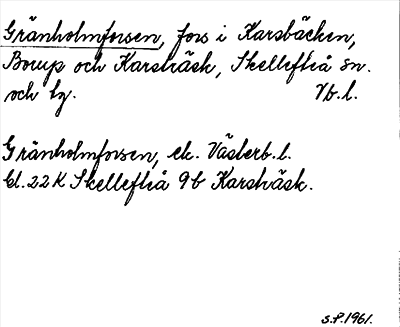 Gränholmforsen, fors i Karsbäcken,
Borup och Karsträsk, Skellefteå sn.
och tg. Vb. l.
Gränholmforsen, ek. Västerb. l.
bl. 22 K Skellefteå 9 b Karsträsk.
S.P. 1961.